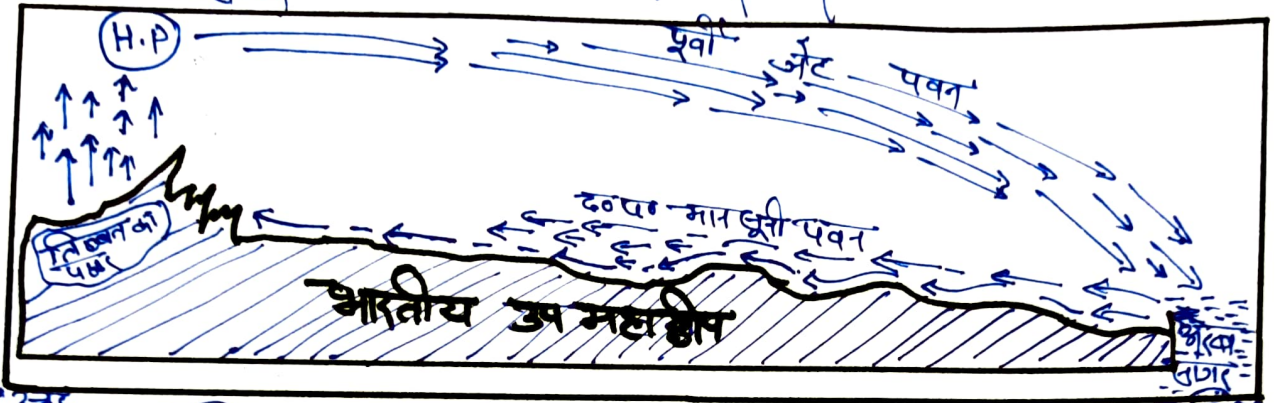 H.P
पूर्वी जेट पवन
द० प० मानसूनी पवन
तिब्बत का
पठार
भारतीय उप महाद्वीप
अरब
सागर